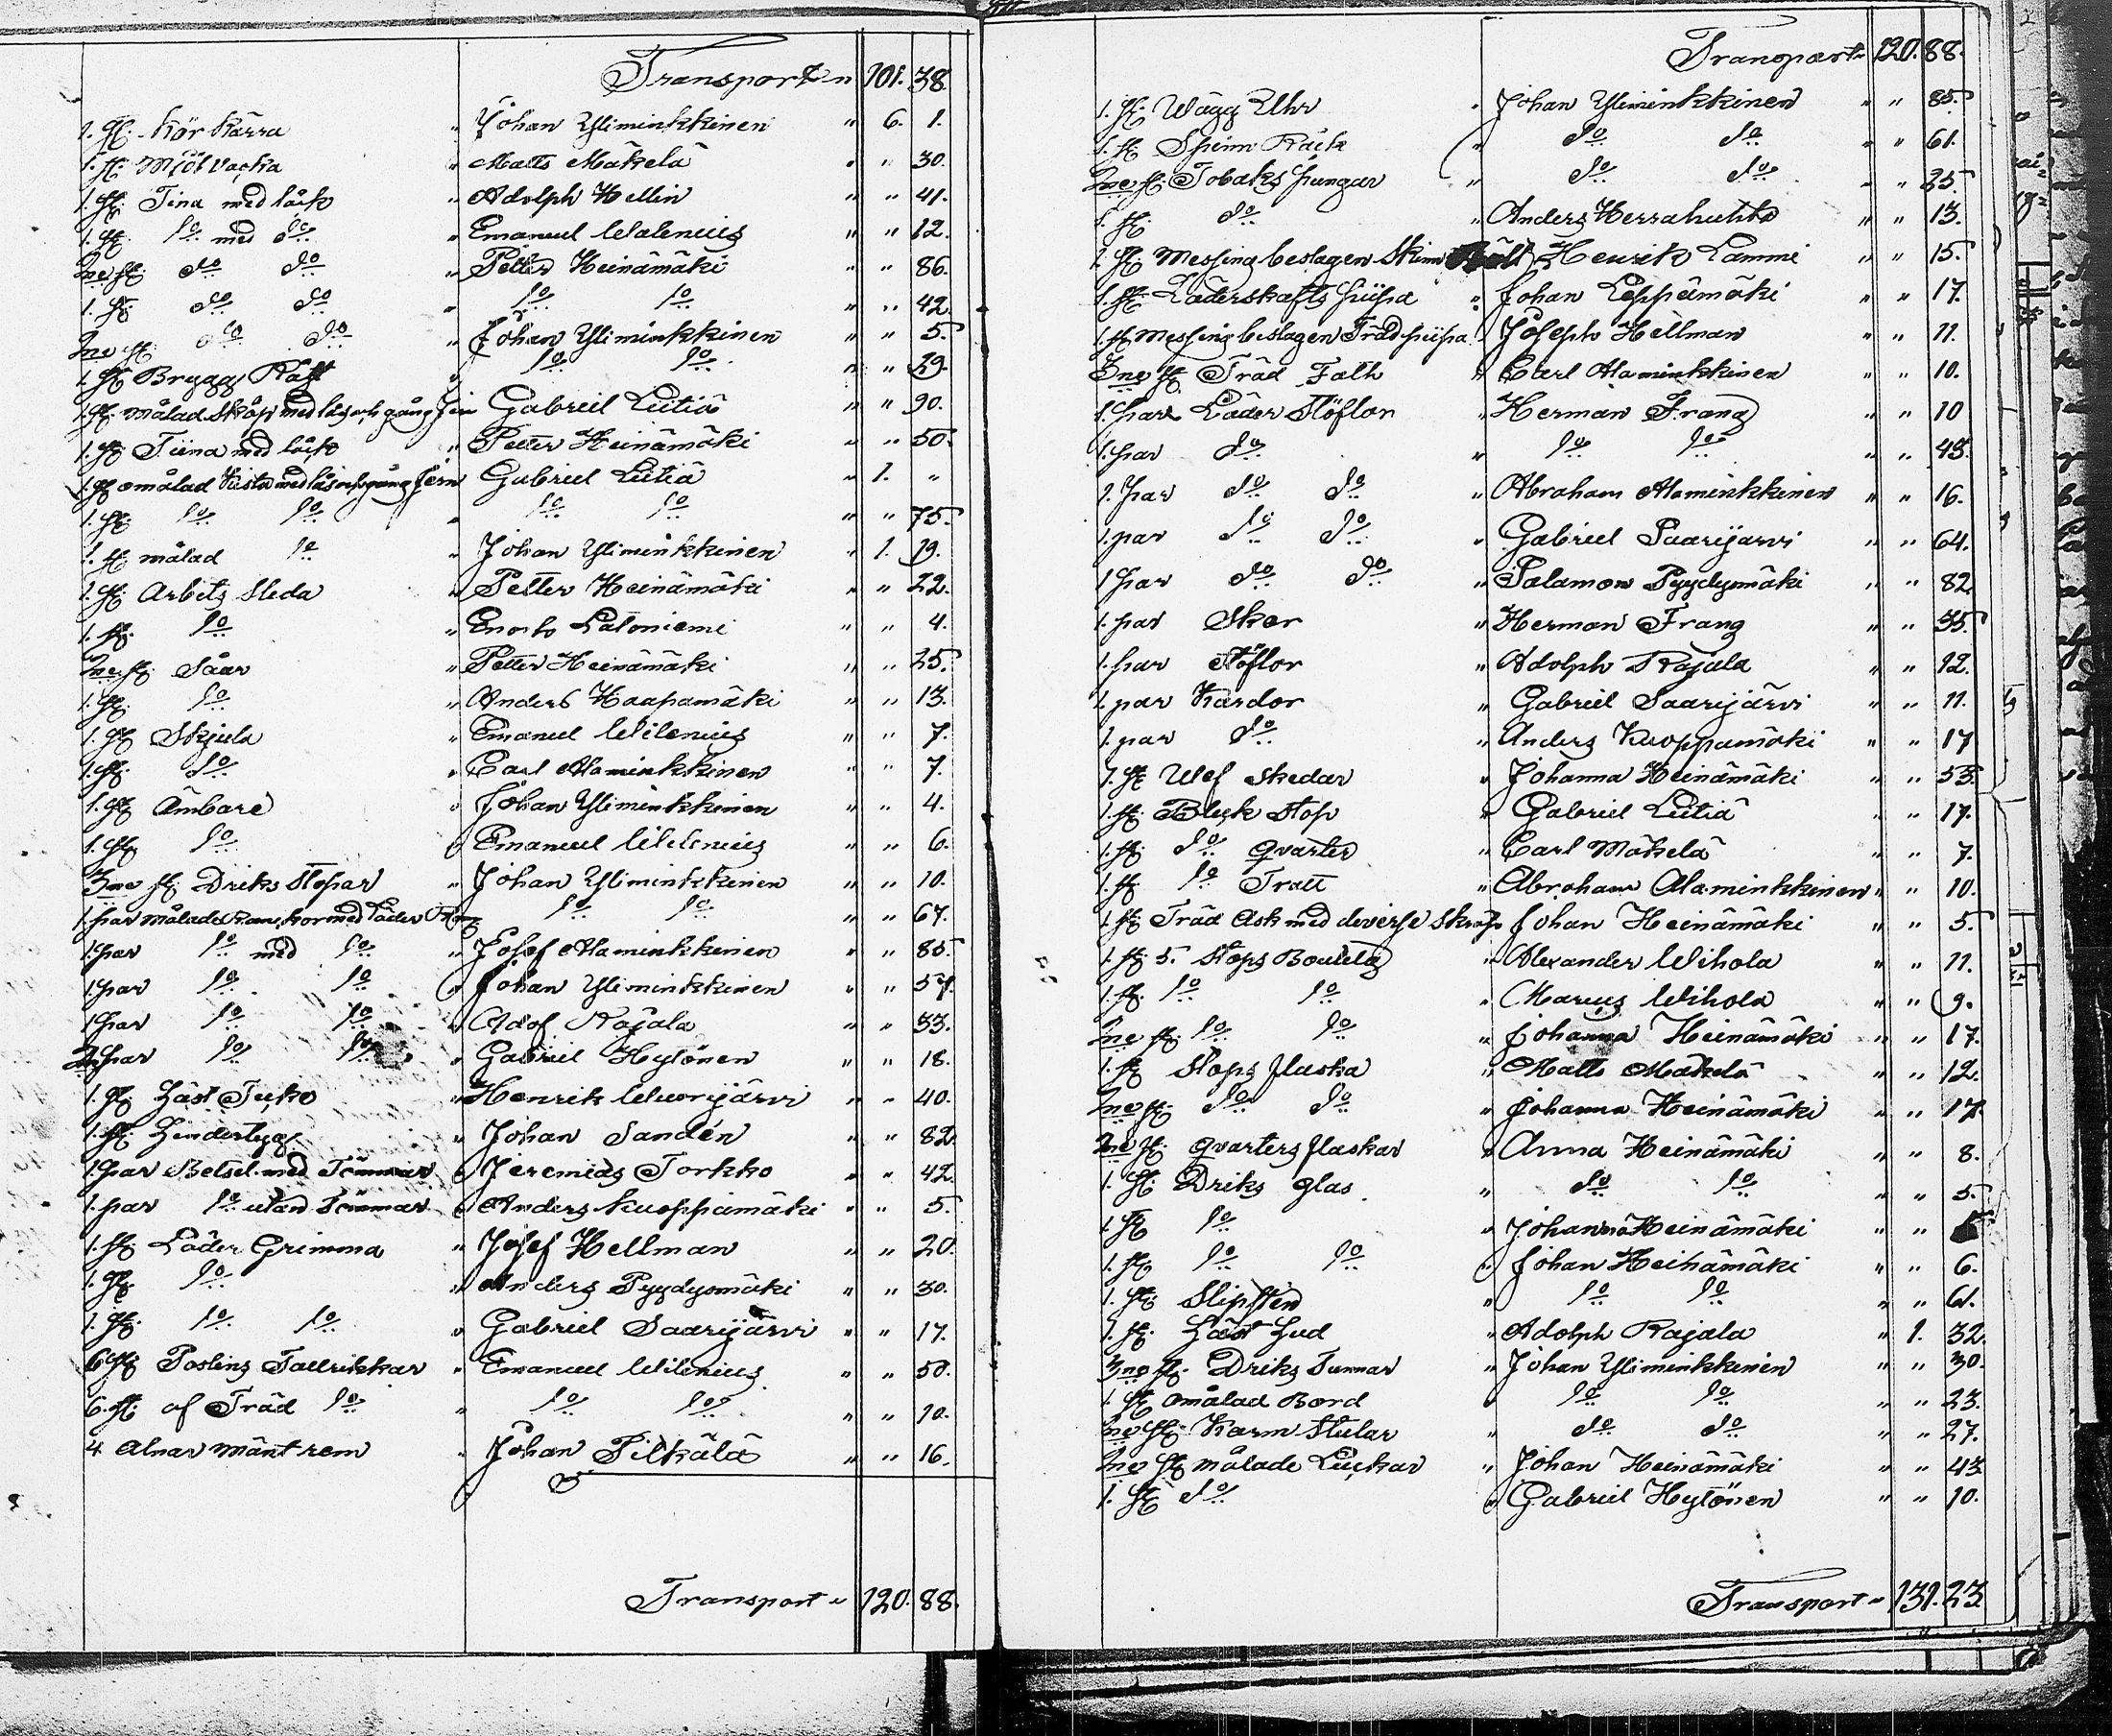 Transport " 101. 38.
1. st. Kör Kärra " Johan Yliminkkinen " 6. 1.
1. st. Mjöl vacka " Matts Mäkelä " " 30.
1. st. Tina med låck " Adolph Hellin " " 41.
1. st. do med do " Emanuel Walenius " " 12.
2ne st. do do " Petter Heinämäki " " 86.
1. st. do do " do do " " 42.
2ne st. do do " Johan Yliminkkinen " " 5.
1. st. Brygg Kar " do do " " 29.
1. st. målad Skåp med lås och gång jern Gabriel Liitiä " " 90.
1. st. Tiina med låck " Petter Heinämäki " " 50.
1. st. omålad Kista med lås och gång jern Gabriel Liitiä " 1. "
1. st. do do " do do " " 75.
1. st. målad do " Johan Yliminkkinen " 1. 19.
1. st. Arbets Sleda " Petter Heinämäki " " 22.
1. st. do " Enorh Laloniemi " " 4.
2ne st. Såar " Petter Heinämäki " " 25.
1. st. do " Anders Haapamäki " " 13.
1. st. Skjula " Emanuel Wilenius " " 7.
1. st. do " Carl Alaminkkinen " " 7.
1. st. Ämbare " Johan Yliminkkinen " " 4.
1. st. do " Emanuel Wilenius " " 6.
3ne st. Driks Stopar " Johan Yliminkkinen " " 10.
1. par målade med Läder do do " " 67.
1. par do med do " Josef Alaminkkinen " " 85.
1. par do do " Johan Yliminkkinen " " 57.
1. par do do " Adof Rajala " " 33.
2. par do do " Gabriel Hytönen " " 18.
1. st. Häst Täcke " Henrik Wuorijärvi " " 40.
1. st. " Johan Sandén " " 82.
1. par Betsel med Tömmar " Jeremias Torkko " " 42.
1. par do utan Tömmar " Anders Kuoppamäki " " 5.
1. st. Läder Grimma " Josef Hellman " " 20.
1. st. do " Anders Pyydysmäki " " 30.
1. st. do do " Gabriel Saarijärvi " " 17.
6. st. Poslins Tallrikkar " Emanuel Wilenius " " 50.
6. st. af Träd do " do do " " 10.
4 Alnar Mänt rem " Johan Pilkälä " " 16.
Transport " 120. 88.
Transport " 120. 88.
1. st. Wägg Uhr " Johan Yliminkkinen " " 85.
1. st. Spinn Råck " do do " " 61.
2ne st. Tobaks pungar " do do " " 25.
1. st. do " Anders Herrahuhta " " 13.
1. st. Messing beslagen Skinn Bält " Henrik Lammi " " 15.
1. st. Läderskafts piipa " Johan Leppämäki " " 17.
1. st. Messing beslagen Träd piipa " Joseph Hellman " " 11.
3ne st. Träd Falk " Carl Alaminkkinen " " 10.
1. par Läder Stöflor " Herman Frang " " 10
1. par do " do do " " 45.
1. par do do " Abraham Alaminkkinen " " 16.
1. par do do " Gabriel Saarijarvi " " 64.
1 par do do " Salamon Pyydysmäki " " 82.
1. par Skor " Herman Frang " " 35.
1. par Stöflor " Adolph Rajala " " 12.
1. par Kardor " Gabriel Saarijärvi " " 11.
1. par do " Anders Kuoppamäki " " 17
1. st. Wef Skedar " Johanna Heinämäki " " 53.
1. st. Bleck Stop " Gabriel Liitiä " " 17.
1. st. do qvarter " Carl Mäkelä " " 7.
1. st. do Tratt " Abraham Alaminkkinen " " 10.
1. st. Träd Ask med diverse Skräp Johan Heinämäki " " 5.
1. st. 5. Stops Boutelg " Alexander Wihola " " 11.
1. st. do do " Marius Wihola " " 9.
2ne st. do do " Johanna Heinämäki " " 17.
1. st. Stops flaska " Matts Mäkelä " " 12.
2ne st. do do " Johanna Heinämäki " " 17.
2ne st. qvarters flaskar " Anna Heinämäki " " 8.
1. st. Driks glas " do do " " 5.
1. st. do " Johanna Heinämäki " "
1. st. do do " Johan Heinämäki " " 6.
1. st. Slipsten " do do " " 61.
1. st. Häst Hud " Adolph Rajala " 1. 32.
3ne st. Driks Tunnar " Johan Yliminkkinen " " 30.
1. st. omålad Bord " do do " " 23.
2ne st. Karm Stular " do do " " 27.
2ne st. målade Luckar " Johan Heinämäki " " 43.
1. st. do " Gabriel Hytönen " " 10.
Transport " 131. 23.